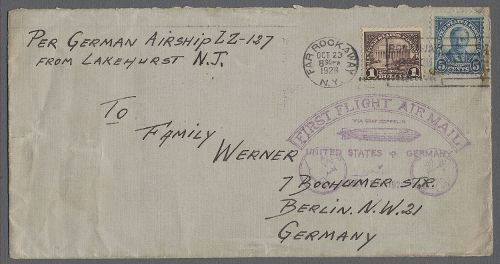 Per German Airship LZ-127
from Lakehurst N.J.
FAR ROCKAWAY
OCT 23
1928
N.Y.
1
5 CENTS 5
FIRST FLIGHT AIR MAIL
VIA GRAF ZEPPELIN
UNITED STATES GERMANY
To
Family
Werner
7 Bochumer Str.
Berlin. N.W. 21
Germany